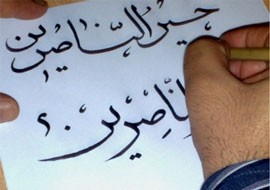 خير الناصرين
الناصِرين